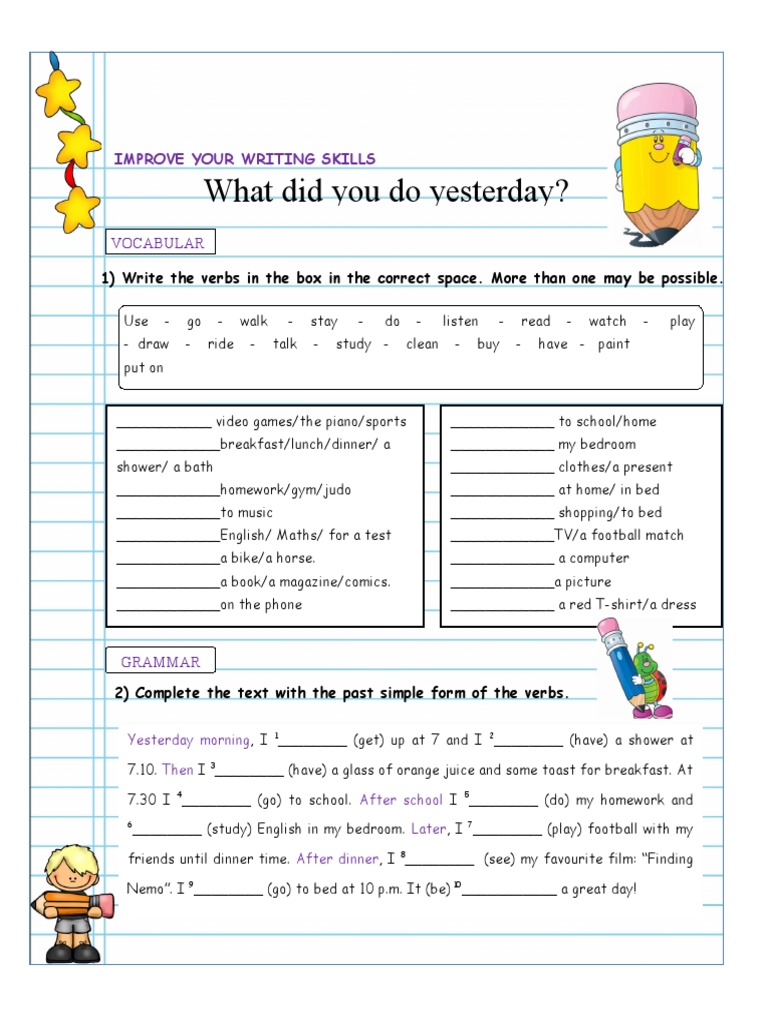 IMPROVE YOUR WRITING SKILLS
What did you do yesterday?
VOCABULAR
1) Write the verbs in the box in the correct space. More than one may be possible.
Use - go - walk - stay - do - listen - read - watch - play
- draw - ride - talk - study - clean - buy - have - paint
put on
____________ video games/the piano/sports
_____________breakfast/lunch/dinner/ a
shower/ a bath
_____________homework/gym/judo
_____________to music
_____________English/ Maths/ for a test
_____________a bike/a horse.
_____________a book/a magazine/comics.
_____________on the phone
_____________ to school/home
_____________ my bedroom
_____________ clothes/a present
_____________ at home/ in bed
_____________ shopping/to bed
_____________TV/a football match
_____________ a computer
_____________a picture
_____________ a red T-shirt/a dress
GRAMMAR
2) Complete the text with the past simple form of the verbs.
Yesterday morning, I ¹_________ (get) up at 7 and I ²_________ (have) a shower at
7.10. Then I ³_________ (have) a glass of orange juice and some toast for breakfast. At
7.30 I ⁴_________ (go) to school. After school I ⁵_________ (do) my homework and
⁶_________ (study) English in my bedroom. Later, I ⁷_________ (play) football with my
friends until dinner time. After dinner, I ⁸_________ (see) my favourite film: “Finding
Nemo”. I ⁹_________ (go) to bed at 10 p.m. It (be) ¹⁰____________ a great day!